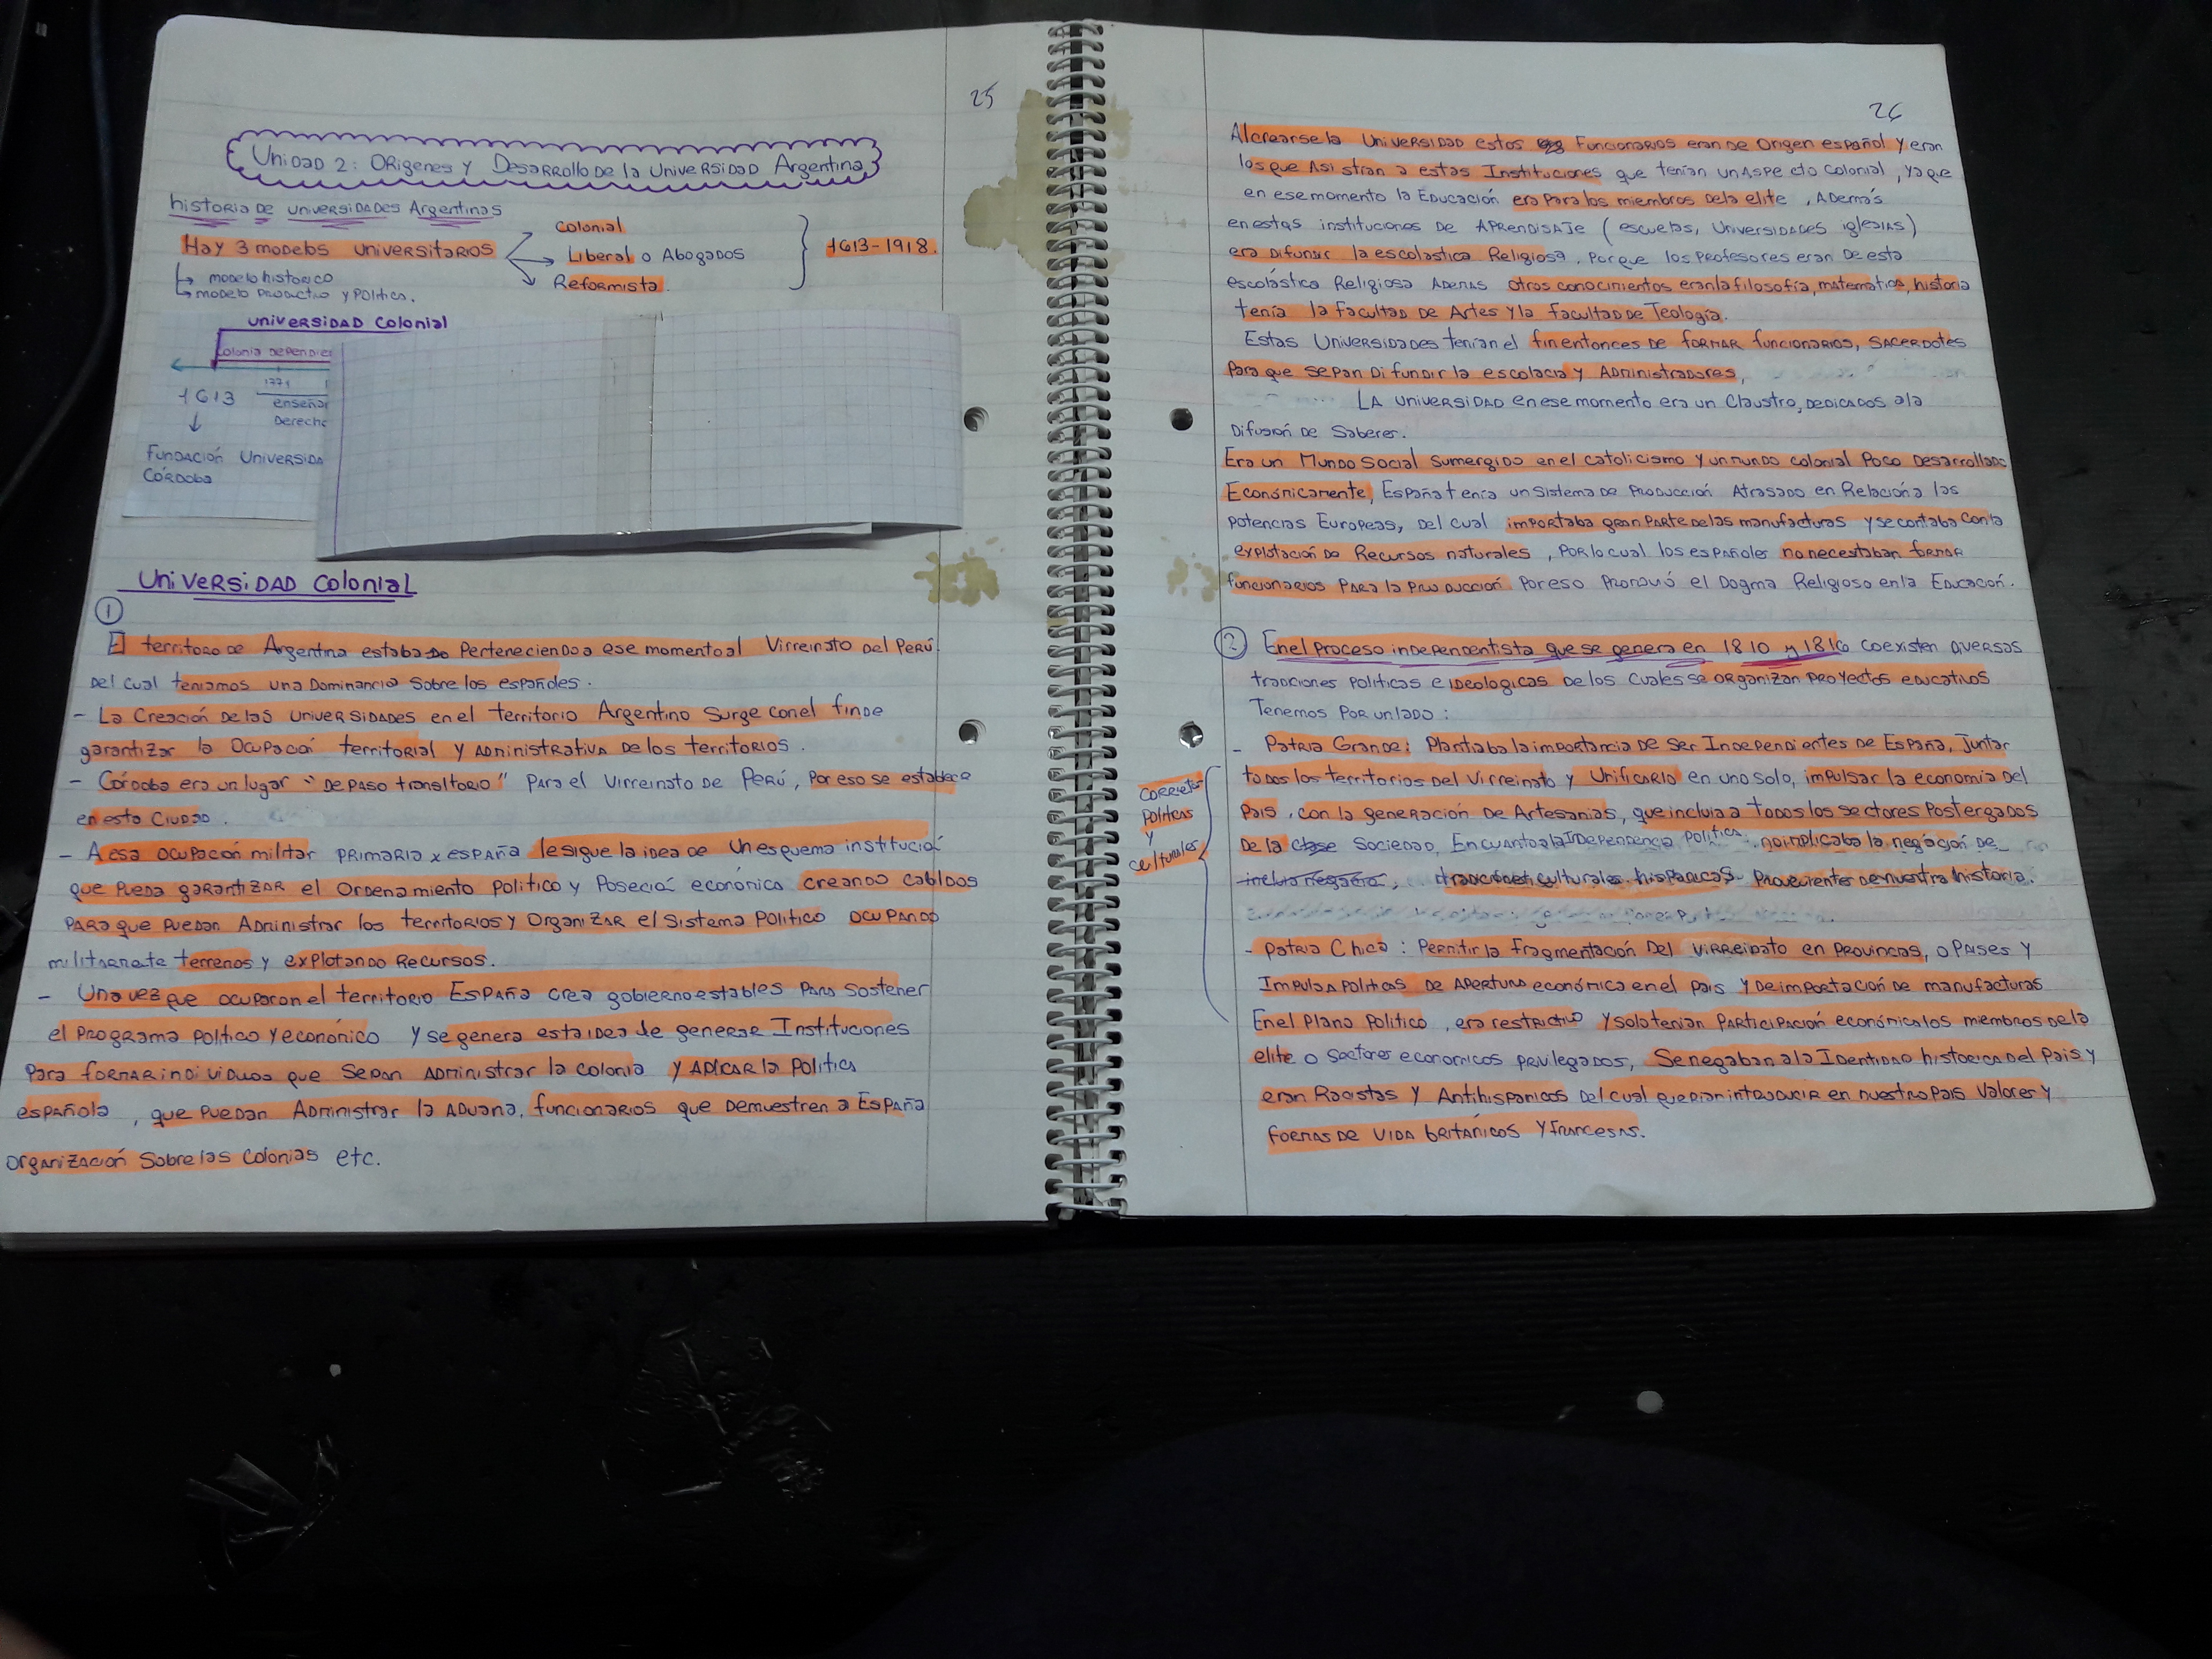 25
Unidad 2: Origenes y Desarrollo de la Universidad Argentina
historia de universidades Argentinas
Hay 3 modelos universitarios
colonial
Liberal o Abogados
Reformista.
1613-1918.
modelo historico
modelo productivo y Politico.
universidad colonial
colonia depend
1613
enseña
Derecho
fundación Universida
Córdoba
Universidad Colonial
1
El territoro de Argentina estaba perteneciendo a ese momento al Virreinato del Perú
del cual teniamos una Dominancia Sobre los españoles.
- La Creación de las universidades en el territorio Argentino Surge con el fin de
garantizar la Ocupación territorial y Administrativa de los territorios.
- Córdoba era un lugar "De paso transitorio" para el Virreinato de Perú, por eso se establece
en esta Ciudad.
- A esa ocupación militar primaria x españa le sigue la idea de un esquema institució
que pueda garantizar el Ordenamiento Politico y Poseció económica creando cabildos
para que puedan Administrar los territorios y Organizar el Sistema Politico ocupando
terrenos y explotando Recursos.
- Una vez que ocuparon el territorio España crea gobierno estables para sostener
el programa politico y económico y se genera esta idea de generar Instituciones
para formar individuos que sepan Administrar la colonia y Aplicar la Politica
española, que puedan Administrar la Aduana, funcionarios que demuestren a España
organización Sobre las Colonias etc.
26
Al crearse la Universidad estos Funcionarios eran de Origen español y eran
los que Asistran a estas Instituciones que tenían un Aspecto Colonial, ya que
en ese momento la Educación era para los miembros de la elite, Además
en estas instituciones de Aprendisaje (escuelas, Universidades iglesias)
era Difundir la escolastica Religiosa, porque los profesores eran de esta
escolástica Religiosa Ademas otros conocimientos eran la filosofía, matematica, historia
tenía la facultad de Artes y la facultad de Teología.
Estas Universidades tenian el fin entonces de formar funcionarios, sacerdotes
para que sepan Difundir la escolacia y Administradores,
La universidad en ese momento era un Claustro, dedicados a la
Difusión de Saberes.
Era un Mundo Social sumergido en el catolicismo y un mundo colonial poco desarrollado
Económicamente, España tenía un Sistema de Producción Atrasado en Relación a las
potencias Europeas, del cual importaba gran parte de las manufacturas y se contaba con la
explotación de Recursos naturales, por lo cual los españoles no necesitaban formar
funcionarios para la producción por eso promovió el Dogma Religioso en la Educación.
2 En el proceso independentista que se genera en 1810 y 1816 coexisten diversas
tradiciones politicas e ideologicas de los cuales se organizan proyectos educativos
Tenemos por un lado:
- Patria Grande: Plantiaba la importancia de ser Independientes de España, Juntar
todos los territorios del Virreinato y Unificarlo en uno solo, impulsar la economia del
Pais, con la generación de Artesanias, que incluia a todos los sectores postergados
De la clase Sociedad, En cuanto a la Independencia Politica no implicaba la negación de
tradiciones culturales hispanicas provenientes de nuestra historia.
Politicas
y
culturales
- Patria Chica: Permitir la fragmentación del Virreinato en provincias, o Paises y
Impulsa politicas de Apertura económica en el pais y de importación de manufacturas
En el plano politico, era restrictivo y solo tenian participación económica los miembros de la
elite o Sectores economicos privilegados, Se negaban a la Identidad historica del Pais y
eran Racistas y Antihispanicos del cual querian introducir en nuestro Pais Valores y
formas de vida britanicos y francesas.